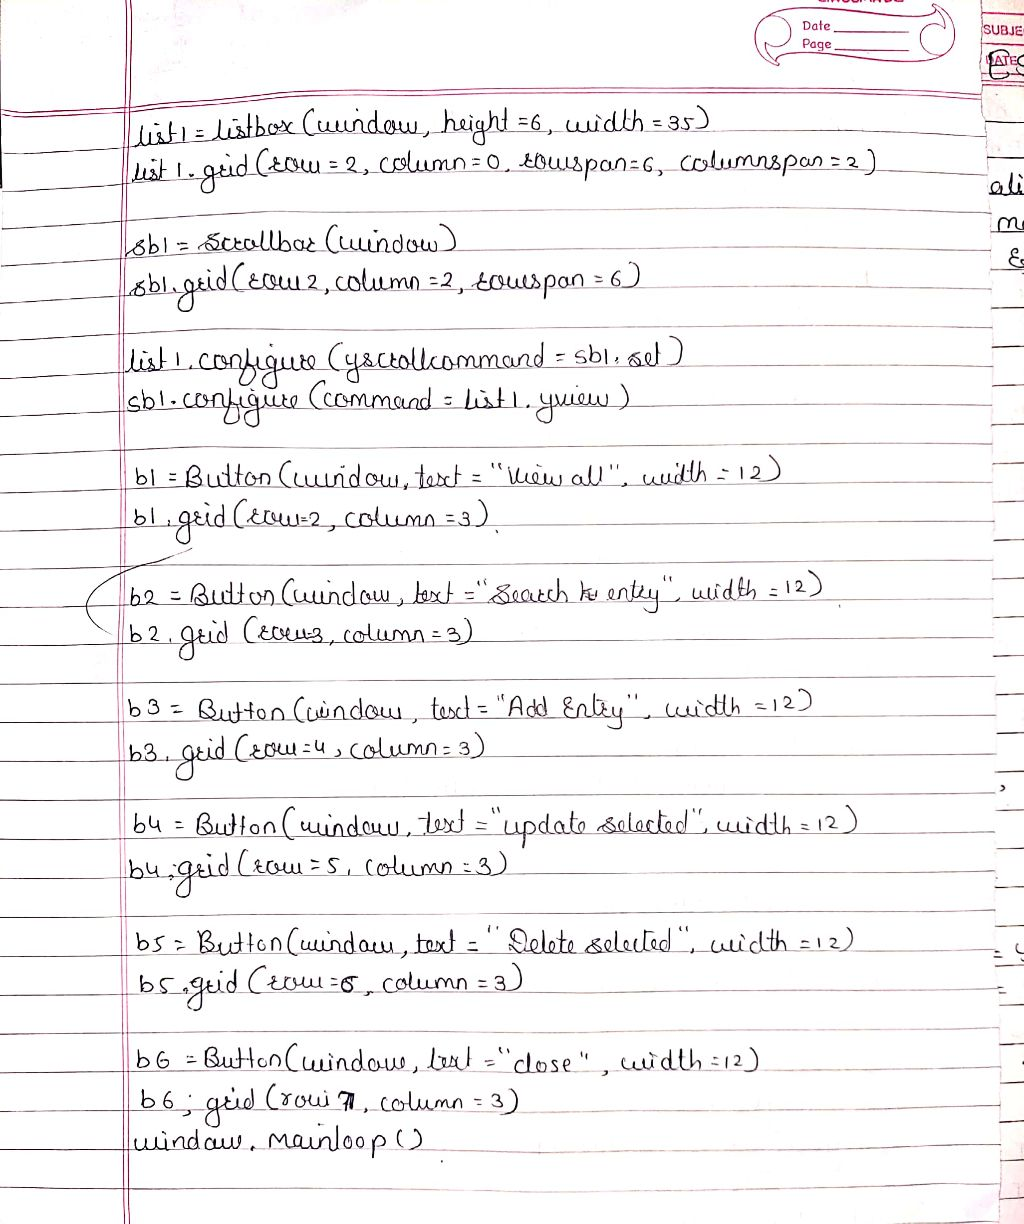 Date
Page
SUBJE
DATE
list1 = listbox (window, height =6, width = 35)
list 1. grid (row = 2, column=0, rowspan=6, columnspan = 2)
sb1 = Scrollbar (window)
sb1. grid (row 2, column =2, rowspan = 6)
list 1. configure (yscrollcommand = sb1. set)
sb1. configure (command = list 1. yview)
b1 = Button (window, text = "View all", width = 12)
b1. grid (row=2, column =3)
b2 = Button (window, text = "Search entry", width = 12)
b2. grid (row=3, column = 3)
b3 = Button (window, text = "Add Entry", width =12)
b3. grid (row=4, column= 3)
b4 = Button (window, text = "update selected", width = 12)
b4. grid (row = 5, column = 3)
b5 = Button (window, text = "Delete selected", width =12)
b5. grid (row =6, column = 3)
b6 = Button (window, text = "close", width =12)
b6; grid (row 7, column = 3)
window. Mainloop ()